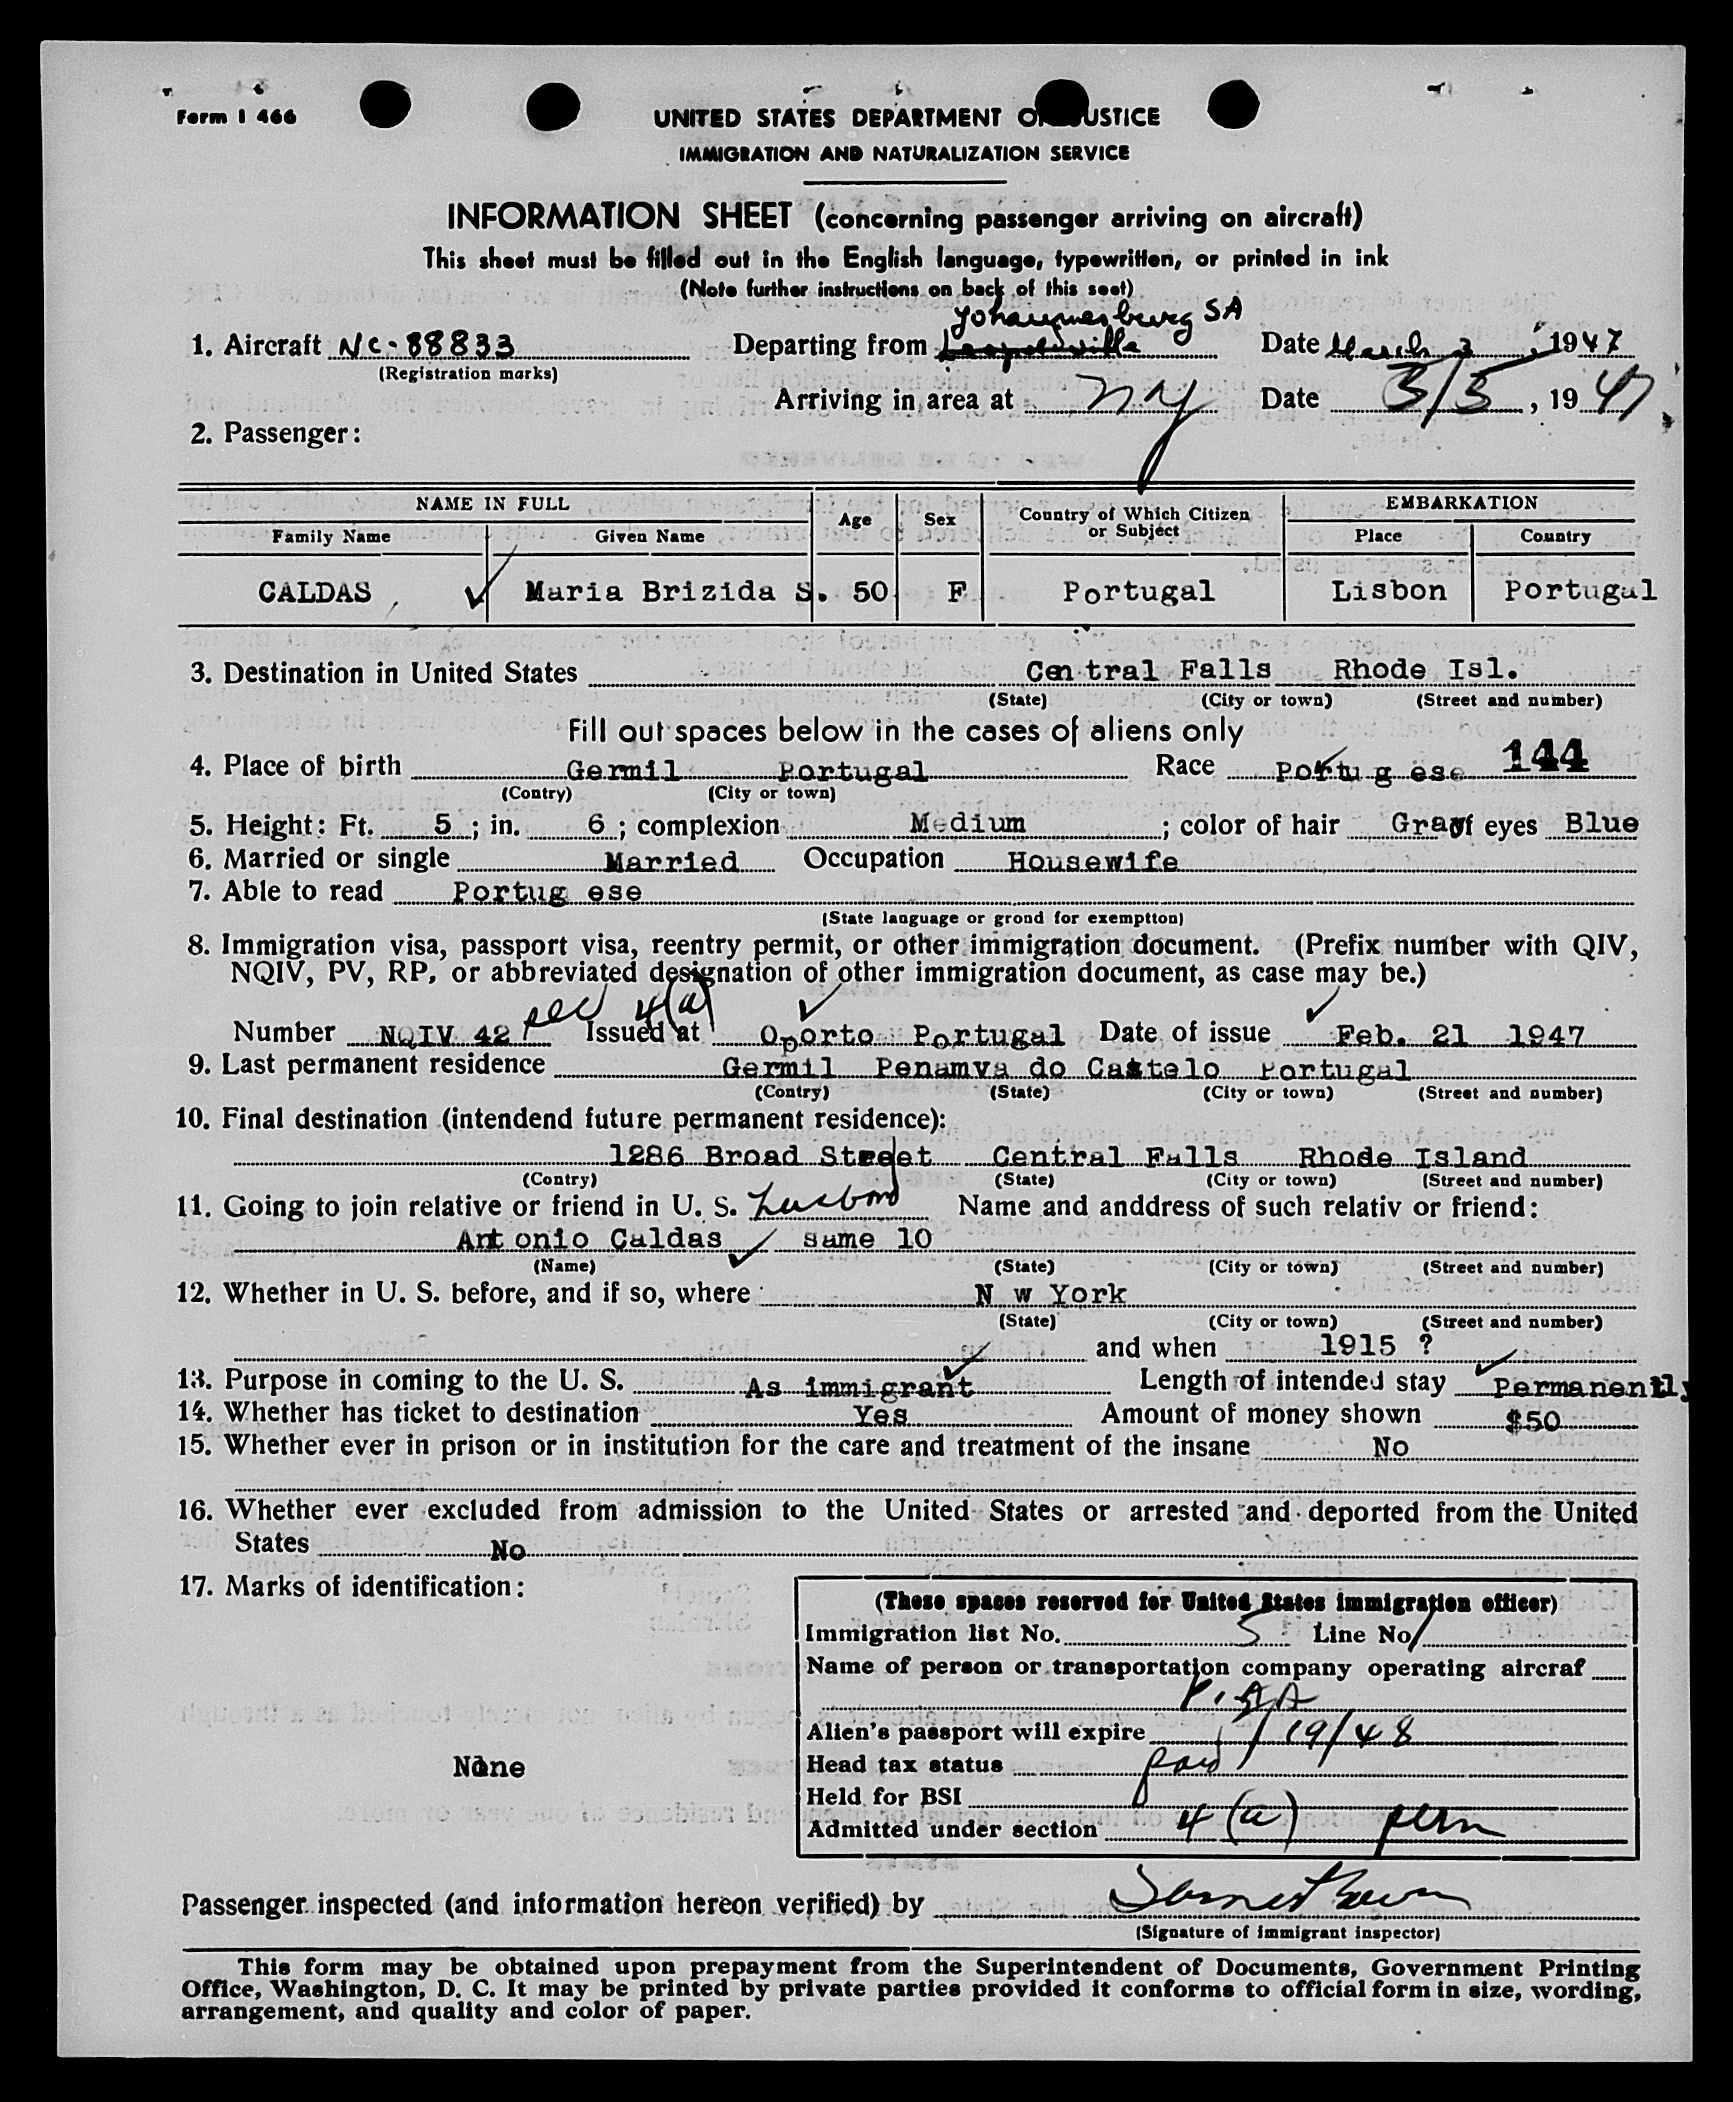 Form I 466
UNITED STATES DEPARTMENT OF JUSTICE
IMMIGRATION AND NATURALIZATION SERVICE
INFORMATION SHEET (concerning passenger arriving on aircraft)
This sheet must be filled out in the English language, typewritten, or printed in ink
(Note further instructions on back of this seet)
Johannesburg SA
1. Aircraft NC-88833 Departing from Leopoldville Date March 3, 1947
(Registration marks)
Arriving in area at NY Date 3/5, 1947
2. Passenger:
NAME IN FULL Age Sex Country of Which Citizen or Subject EMBARKATION
Family Name Given Name Place Country
CALDAS, Maria Brizida S. 50 F Portugal Lisbon Portugal
3. Destination in United States Central Falls Rhode Isl.
(State) (City or town) (Street and number)
Fill out spaces below in the cases of aliens only
4. Place of birth Germil Portugal Race Portug ese 144
(Contry) (City or town)
5. Height: Ft. 5; in. 6; complexion Medium; color of hair Gray eyes Blue
6. Married or single Married Occupation Housewife
7. Able to read Portug ese
(State language or grond for exemptton)
8. Immigration visa, passport visa, reentry permit, or other immigration document. (Prefix number with QIV,
NQIV, PV, RP, or abbreviated designation of other immigration document, as case may be.)
sec 4(a)
Number NQIV 42 Issued at Oporto Portugal Date of issue Feb. 21 1947
9. Last permanent residence Germil Penamva do Castelo Portugal
(Contry) (State) (City or town) (Street and number)
10. Final destination (intendend future permanent residence):
1286 Broad Street Central Falls Rhode Island
(Contry) (State) (City or town) (Street and number)
11. Going to join relative or friend in U. S. husband Name and anddress of such relativ or friend:
Ant onio Caldas same 10
(Name) (State) (City or town) (Street and number)
12. Whether in U. S. before, and if so, where N w York
(State) (City or town) (Street and number)
and when 1915 ?
13. Purpose in coming to the U. S. As immigrant Length of intended stay Permanently
14. Whether has ticket to destination Yes Amount of money shown $50
15. Whether ever in prison or in institution for the care and treatment of the insane No
16. Whether ever excluded from admission to the United States or arrested and deported from the United
States No
17. Marks of identification:
None
(These spaces reserved for United States immigration officer)
Immigration list No. 5 Line No 1
Name of person or transportation company operating aircraf
P.A.A
Alien's passport will expire 1/19/48
Head tax status paid
Held for BSI
Admitted under section 4(a) perm
Passenger inspected (and information hereon verified) by
(Signature of immigrant inspector)
This form may be obtained upon prepayment from the Superintendent of Documents, Government Printing
Office, Washington, D. C. It may be printed by private parties provided it conforms to official form in size, wording,
arrangement, and quality and color of paper.